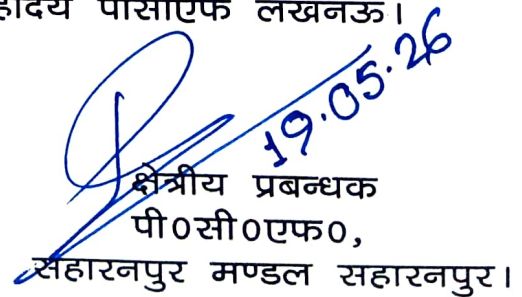 होदय पीसीएफ लखनऊ।
19.05.26
क्षेत्रीय प्रबन्धक
पी०सी०एफ०,
सहारनपुर मण्डल सहारनपुर।